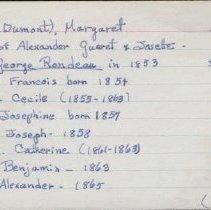 Dumont), Margaret
of Alexander Queret & Josette.
George Rondeau in 1853
Francois born 1854
Cecile (1855-1863)
Josephine born 1857
Joseph- 1858
Catherine (1861-1863)
Benjamin - 1863
Alexander - 1865
(